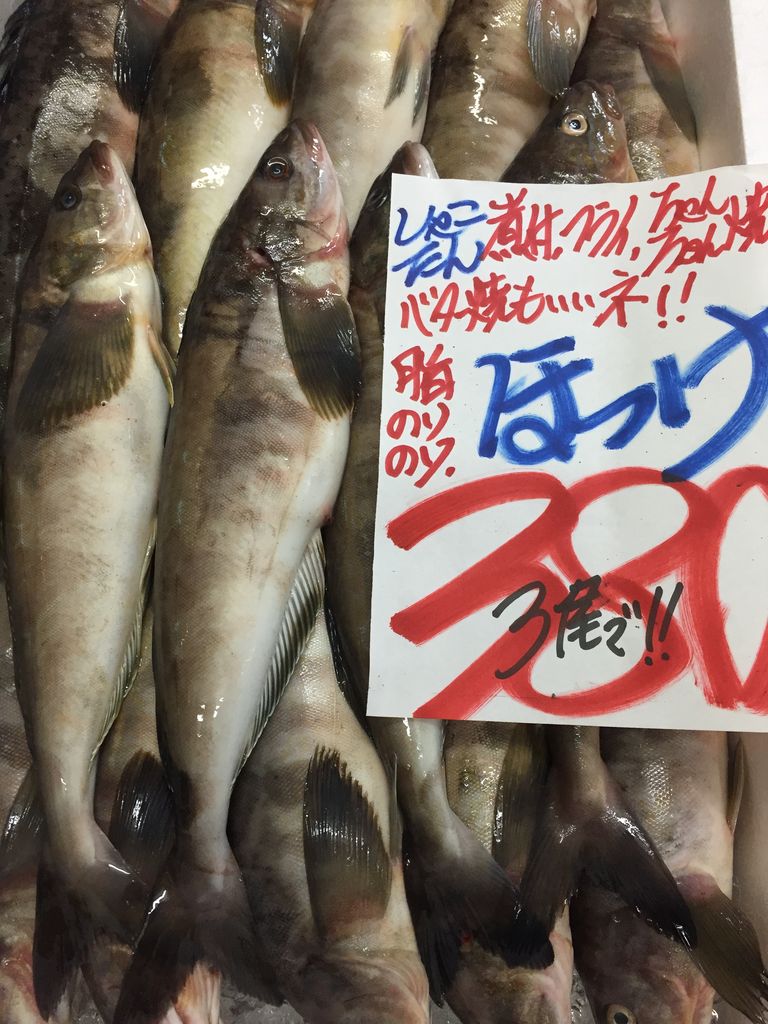 しゃこたん 煮付、フライ、ちゃんちゃん焼
バター焼もいいネ!!
脂のりのり、
ほっけ
380
3尾で!!